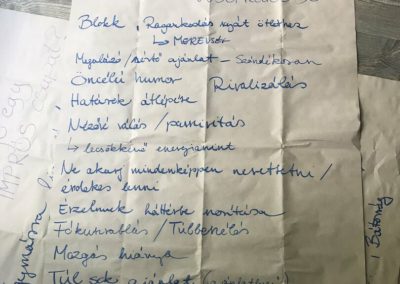 Blokk, Ragaszkodás saját ötlethez
↳ MEREVSÉG
Megalázó / sértő ajánlat – Szándékosan
Öncélú humor Rivalizálás
Határok átlépése
Nézővé válás / passzivitás
↳ lecsökkenő energiaszint
Ne akarj mindenképpen nevettetni /
érdekes lenni
Érzelmek háttérbe szorítása
Fókuszrablás / Túlbeszélés
Mozgás hiánya
Túl sok ajánlat
egy
IMPRÓS
Bátorság